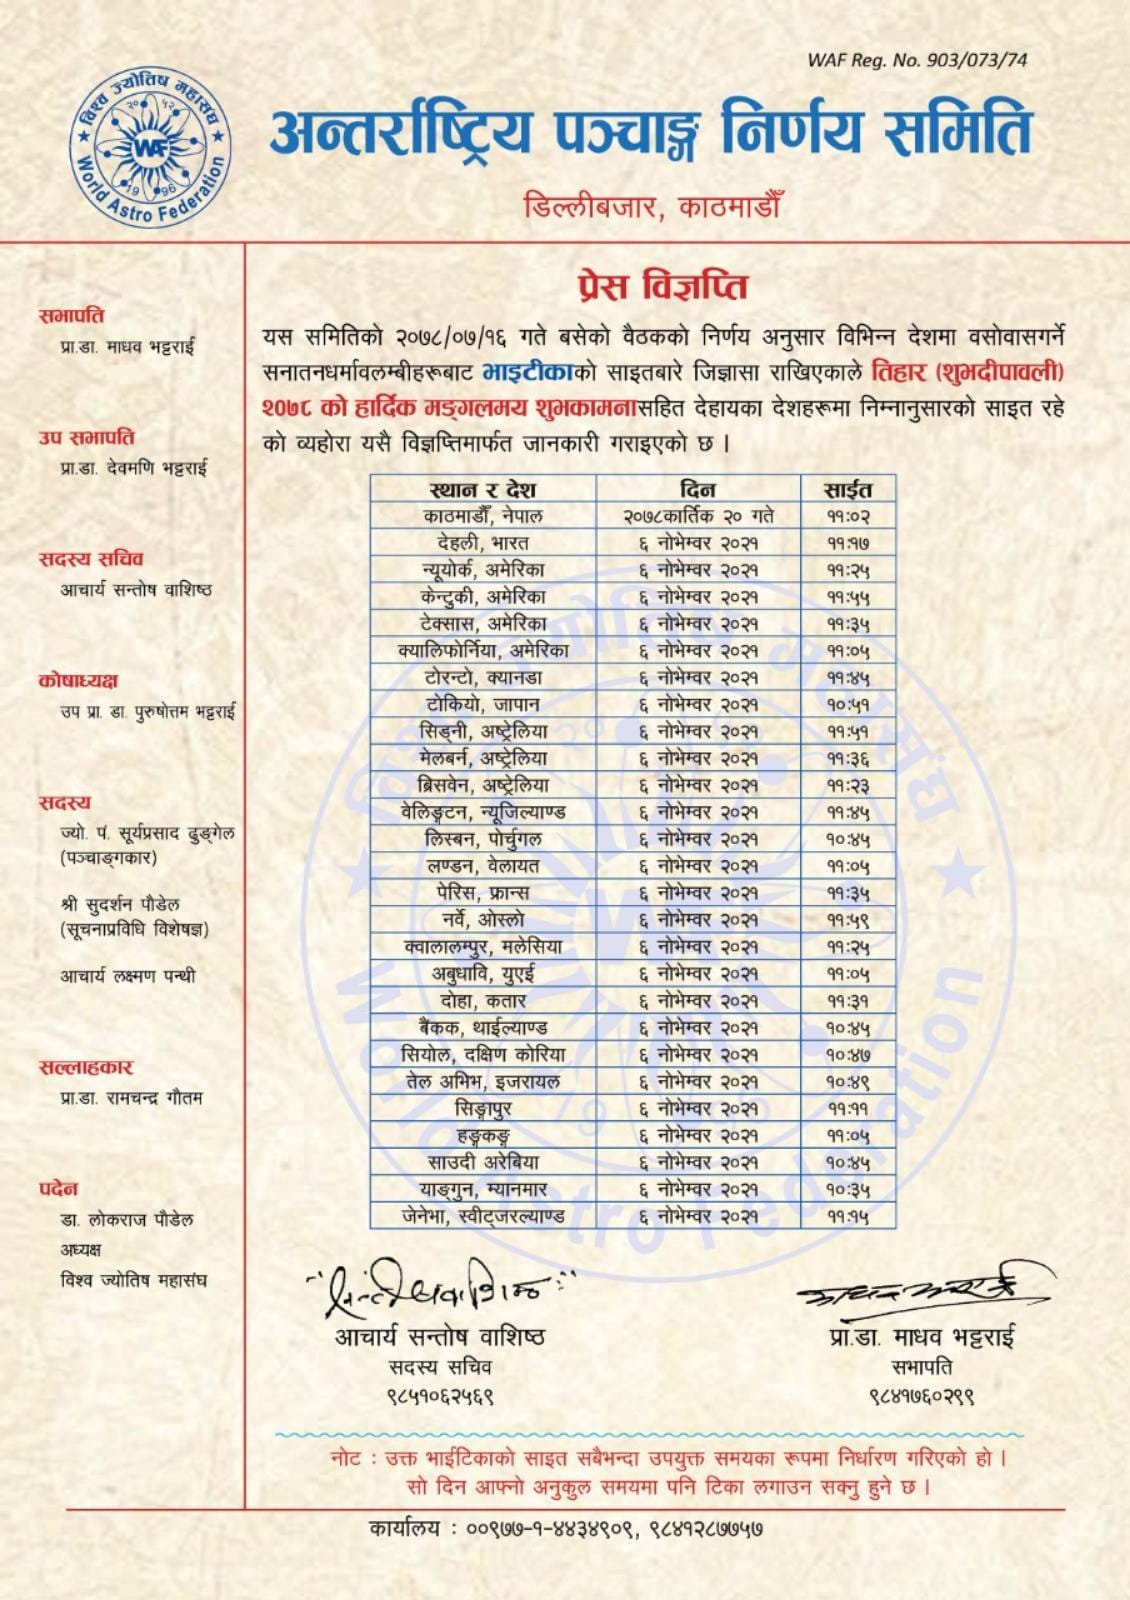 WAF Reg. No. 903/073/74
विश्व ज्योतिष महासंघ
२० ५२
WAF
1996
World Astro Federation
अन्तर्राष्ट्रिय पञ्चाङ्ग निर्णय समिति
डिल्लीबजार, काठमाडौँ
सभापति
प्रा.डा. माधव भट्टराई
उप सभापति
प्रा.डा. देवमणि भट्टराई
सदस्य सचिव
आचार्य सन्तोष वाशिष्ठ
कोषाध्यक्ष
उप प्रा. डा. पुरुषोत्तम भट्टराई
सदस्य
ज्यो. पं. सूर्यप्रसाद ढुङ्गेल
(पञ्चाङ्गकार)
श्री सुदर्शन पौडेल
(सूचनाप्रविधि विशेषज्ञ)
आचार्य लक्ष्मण पन्थी
सल्लाहकार
प्रा.डा. रामचन्द्र गौतम
पदेन
डा. लोकराज पौडेल
अध्यक्ष
विश्व ज्योतिष महासंघ
प्रेस विज्ञप्ति
यस समितिको २०७८/०७/१६ गते बसेको वैठकको निर्णय अनुसार विभिन्न देशमा वसोवासगर्ने
सनातनधर्मावलम्बीहरूबाट भाइटीकाको साइतबारे जिज्ञासा राखिएकाले तिहार (शुभदीपावली)
२०७८ को हार्दिक मङ्गलमय शुभकामनासहित देहायका देशहरूमा निम्नानुसारको साइत रहे
को व्यहोरा यसै विज्ञप्तिमार्फत जानकारी गराइएको छ ।
स्थान र देश दिन साईत
काठमाडौँ, नेपाल २०७८कार्तिक २० गते ११:०२
देहली, भारत ६ नोभेम्वर २०२१ ११:१७
न्यूयोर्क, अमेरिका ६ नोभेम्वर २०२१ ११:२५
केन्टुकी, अमेरिका ६ नोभेम्वर २०२१ ११:५५
टेक्सास, अमेरिका ६ नोभेम्वर २०२१ ११:३५
क्यालिफोर्निया, अमेरिका ६ नोभेम्वर २०२१ ११:०५
टोरन्टो, क्यानडा ६ नोभेम्वर २०२१ ११:४५
टोकियो, जापान ६ नोभेम्वर २०२१ १०:५१
सिड्नी, अष्ट्रेलिया ६ नोभेम्वर २०२१ ११:५१
मेलबर्न, अष्ट्रेलिया ६ नोभेम्वर २०२१ ११:३६
ब्रिसवेन, अष्ट्रेलिया ६ नोभेम्वर २०२१ ११:२३
वेलिङ्गटन, न्यूजिल्याण्ड ६ नोभेम्वर २०२१ ११:४५
लिस्बन, पोर्चुगल ६ नोभेम्वर २०२१ १०:४५
लण्डन, वेलायत ६ नोभेम्वर २०२१ ११:०५
पेरिस, फ्रान्स ६ नोभेम्वर २०२१ ११:३५
नर्वे, ओस्लो ६ नोभेम्वर २०२१ ११:५९
क्वालालम्पुर, मलेसिया ६ नोभेम्वर २०२१ ११:२५
अबुधावि, युएई ६ नोभेम्वर २०२१ ११:०५
दोहा, कतार ६ नोभेम्वर २०२१ ११:३१
बैंकक, थाईल्याण्ड ६ नोभेम्वर २०२१ १०:४५
सियोल, दक्षिण कोरिया ६ नोभेम्वर २०२१ १०:४७
तेल अभिभ, इजरायल ६ नोभेम्वर २०२१ १०:४९
सिङ्गापुर ६ नोभेम्वर २०२१ ११:११
हङ्कङ्ग ६ नोभेम्वर २०२१ ११:०५
साउदी अरेबिया ६ नोभेम्वर २०२१ १०:४५
याङ्गुन, म्यानमार ६ नोभेम्वर २०२१ १०:३५
जेनेभा, स्वीट्जरल्याण्ड ६ नोभेम्वर २०२१ ११:१५
आचार्य सन्तोष वाशिष्ठ
सदस्य सचिव
९८५१०६२५६९
प्रा.डा. माधव भट्टराई
सभापति
९८४१७६०२९९
नोट : उक्त भाईटिकाको साइत सबैभन्दा उपयुक्त समयका रूपमा निर्धारण गरिएको हो ।
सो दिन आफ्नो अनुकुल समयमा पनि टिका लगाउन सक्नु हुने छ ।
कार्यालय : ००९७७-१-४४३४९०९, ९८४१२८७७५७